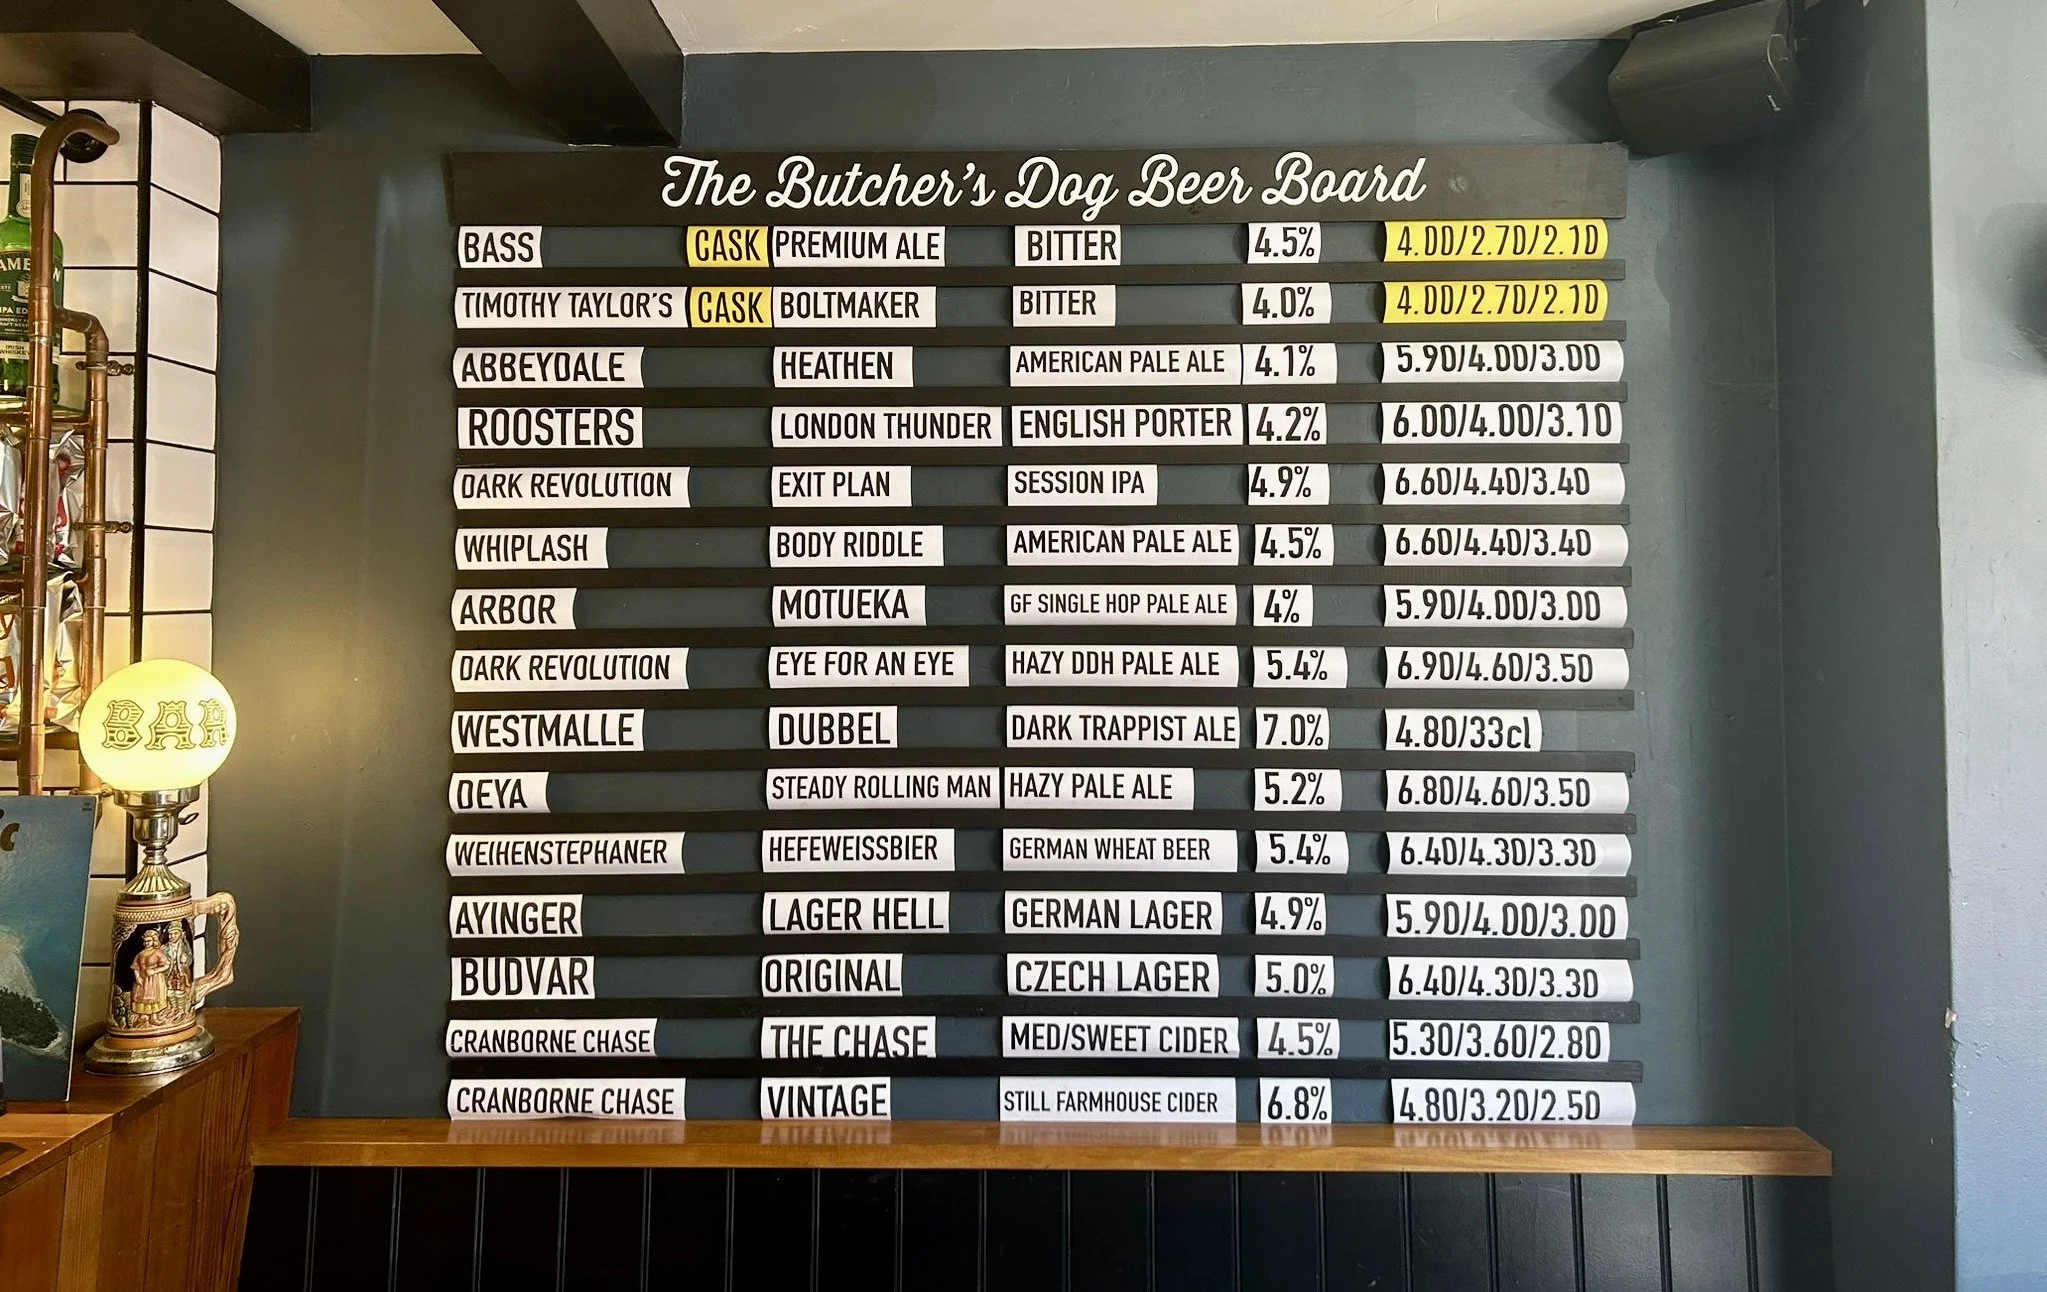 The Butcher's Dog Beer Board
BASS CASK PREMIUM ALE BITTER 4.5% 4.00/2.70/2.10
TIMOTHY TAYLOR'S CASK BOLTMAKER BITTER 4.0% 4.00/2.70/2.10
ABBEYDALE HEATHEN AMERICAN PALE ALE 4.1% 5.90/4.00/3.00
ROOSTERS LONDON THUNDER ENGLISH PORTER 4.2% 6.00/4.00/3.10
DARK REVOLUTION EXIT PLAN SESSION IPA 4.9% 6.60/4.40/3.40
WHIPLASH BODY RIDDLE AMERICAN PALE ALE 4.5% 6.60/4.40/3.40
ARBOR MOTUEKA GF SINGLE HOP PALE ALE 4% 5.90/4.00/3.00
DARK REVOLUTION EYE FOR AN EYE HAZY DDH PALE ALE 5.4% 6.90/4.60/3.50
WESTMALLE DUBBEL DARK TRAPPIST ALE 7.0% 4.80/33cl
DEYA STEADY ROLLING MAN HAZY PALE ALE 5.2% 6.80/4.60/3.50
WEIHENSTEPHANER HEFEWEISSBIER GERMAN WHEAT BEER 5.4% 6.40/4.30/3.30
AYINGER LAGER HELL GERMAN LAGER 4.9% 5.90/4.00/3.00
BUDVAR ORIGINAL CZECH LAGER 5.0% 6.40/4.30/3.30
CRANBORNE CHASE THE CHASE MED/SWEET CIDER 4.5% 5.30/3.60/2.80
CRANBORNE CHASE VINTAGE STILL FARMHOUSE CIDER 6.8% 4.80/3.20/2.50
BAR